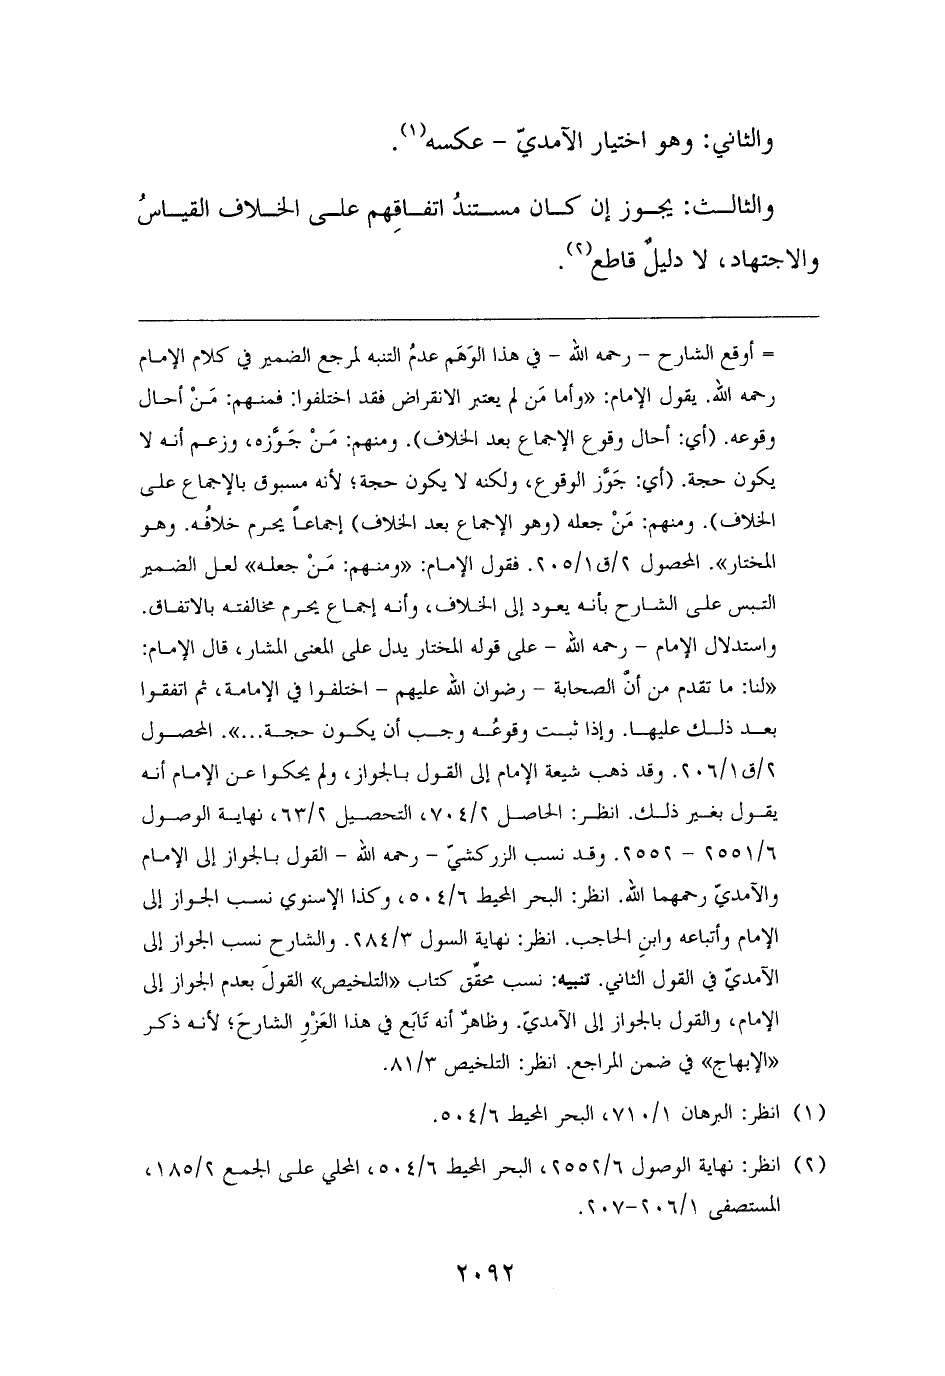 والثاني: وهو اختيار الآمديّ – عكسه(١).
والثالث: يجوز إن كان مستندُ اتفاقِهم على الخلاف القياسُ
والاجتهاد، لا دليلٌ قاطع(٢).
= أوقع الشارح – رحمه الله – في هذا الوَهَم عدمُ التنبه لمرجع الضمير في كلام الإمام
رحمه الله. يقول الإمام: «وأما مَن لم يعتبر الانقراض فقد اختلفوا: فمنهم: مَنْ أحال
وقوعه. (أي: أحال وقوع الإجماع بعد الخلاف). ومنهم: مَنْ جَوَّزه، وزعم أنه لا
يكون حجة. (أي: جَوَّز الوقوع، ولكنه لا يكون حجة؛ لأنه مسبوق بالإجماع على
الخلاف). ومنهم: مَنْ جعله (وهو الإجماع بعد الخلاف) إجماعاً يحرم خلافُه. وهو
المختار». المحصول ٢/ق١/٢٠٥. فقول الإمام: «ومنهم: مَنْ جعله» لعل الضمير
التبس على الشارح بأنه يعود إلى الخلاف، وأنه إجماع يحرم مخالفته بالاتفاق.
واستدلال الإمام – رحمه الله – على قوله المختار يدل على المعنى المشار، قال الإمام:
«لنا: ما تقدم من أنَّ الصحابة – رضوان الله عليهم – اختلفوا في الإمامة، ثم اتفقوا
بعد ذلك عليها. وإذا ثبت وقوعُه وجب أن يكون حجة...». المحصول
٢/ق١/٢٠٦. وقد ذهب شيعة الإمام إلى القول بالجواز، ولم يحكوا عن الإمام أنه
يقول بغير ذلك. انظر: الحاصل ٢/٧٠٤، التحصيل ٢/٦٣، نهاية الوصول
٦/٢٥٥١ – ٢٥٥٢. وقد نسب الزركشيّ – رحمه الله – القول بالجواز إلى الإمام
والآمديّ رحمهما الله. انظر: البحر المحيط ٦/٥٠٤، وكذا الإسنوي نسب الجواز إلى
الإمام وأتباعه وابنِ الحاجب. انظر: نهاية السول ٣/٢٨٤. والشارح نسب الجواز إلى
الآمديّ في القول الثاني. تنبيه: نسب محقِّق كتاب «التلخيص» القولَ بعدم الجواز إلى
الإمام، والقول بالجواز إلى الآمديّ. وظاهرٌ أنه تَابَع في هذا العَزْوِ الشارحَ؛ لأنه ذكر
«الإبهاج» في ضمن المراجع. انظر: التلخيص ٣/٨١.
(١) انظر: البرهان ١/٧١٠، البحر المحيط ٦/٥٠٤.
(٢) انظر: نهاية الوصول ٦/٢٥٥٢، البحر المحيط ٦/٥٠٤، المحلي على الجمع ٢/١٨٥،
المستصفى ١/٢٠٦-٢٠٧.
٢٠٩٢